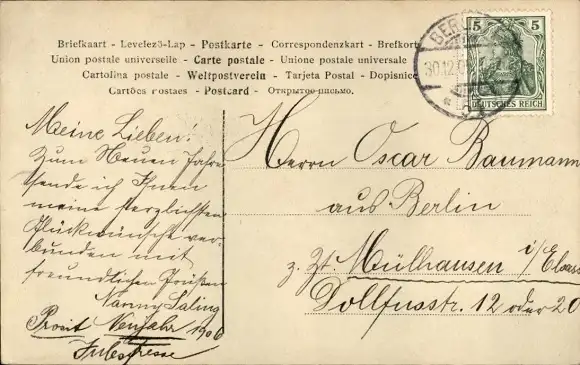 Briefkaart - Levelező-Lap - Postkarte - Correspondenzkart - Brefkort
Union postale universelle - Carte postale - Unione postale universale
Cartolina postale - Weltpostverein - Tarjeta Postal - Dopisnice
Cartões postaes - Postcard - Открытое письмо.
5 5
DEUTSCHES REICH
BERLIN
30.12.05
Meine Lieben!
Zum Neuen Jahre
sende ich Ihnen
meine herzlichsten
Glückwünsche ver-
bunden mit
freundlichen Grüßen
Nanny Saling
Prosit Neujahr 1906
Herrn Oscar Baumann
aus Berlin
z. Zt. Mülhausen i/Elsass
Dollfusstr. 12 oder 20